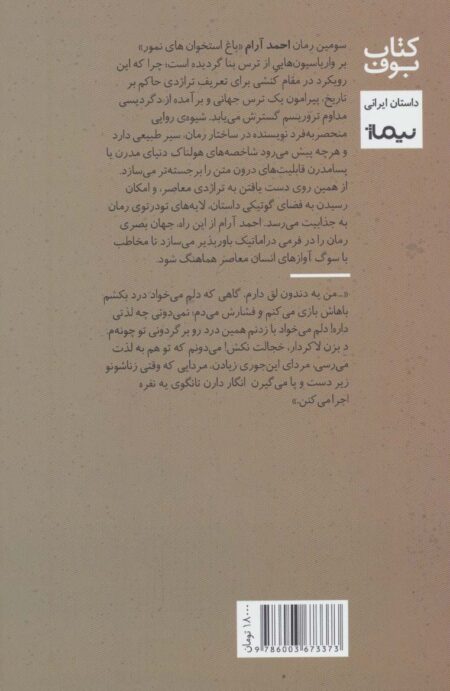 کتاب
بوف
داستان ایرانی
نیماژ
سومین رمان احمد آرام «باغ استخوان های نمور»
بر واریاسیون‌هایی از ترس بنا گردیده است؛ چرا که این
رویکرد در مقام کنشی برای تعریف تراژدی حاکم بر
تاریخ، پیرامون یک ترس جهانی و برآمده از دگردیسی
مداوم تروریسم گسترش می‌یابد. شیوه‌ی روایی
منحصربه‌فرد نویسنده در ساختار رمان، سیر طبیعی دارد
و هرچه پیش می‌رود شاخصه‌های هولناک دنیای مدرن یا
پسامدرن قابلیت‌های درون متن را برجسته‌تر می‌سازد.
از همین روی دست یافتن به تراژدی معاصر، و امکان
رسیدن به فضای گوتیکی داستان، لایه‌های تودرتوی رمان
به جذابیت می‌رسد. احمد آرام از این راه، جهان بصری
رمان را در فرمی دراماتیک باورپذیر می‌سازد تا مخاطب
با سوگ آوازهای انسان معاصر هماهنگ شود.
«...من یه دندون لق دارم. گاهی که دلم می‌خواد درد بکشم
باهاش بازی می‌کنم و فشارش می‌دم؛ نمی‌دونی چه لذتی
داره! دلم می‌خواد با زدنم همین درد رو برگردونی تو چونه‌م.
دِ بزن لاکردار، خجالت نکش! می‌دونم که تو هم به لذت
می‌رسی، مردای این‌جوری زیادن. مردایی که وقتی زناشونو
زیر دست و پا می‌گیرن انگار دارن تانگوی یه نفره
اجرا می‌کنن.»
۱۸۰۰۰ تومان
9 786003 673373